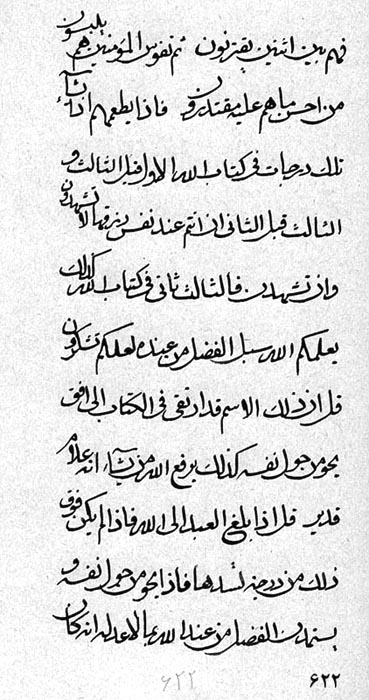 فهم بين اثنين يقترنون ثم نفوس المؤمنين هم يلبسون
من احسن ما هم عليه مقتدرون فاذا يطعمهم
تلك درجات في كتاب الله الاول قبل الثالث و
الثالث قبل الثاني ان انتم عند نفس دينها لا تشهدون
وان تشهدن فالثالث ثاني في كتاب الله كذلك
يعلمكم الله سبل الفضل من عنده لعلكم تشكرون
قل ان ذلك الاسم قد ارتقى في الكتاب الى افق
يحو من حول نفسه كذلك يرفع الله من يشاء انه علام
قدير قل اذا بلغ العبد الى الله فاذا لم يكن فوق
ذلك من درجة فاذا يحو من حول نفسه و
يستمدن الفضل من عند الله بما لا عدل له انه كان
۶۲۲
۶۲۲